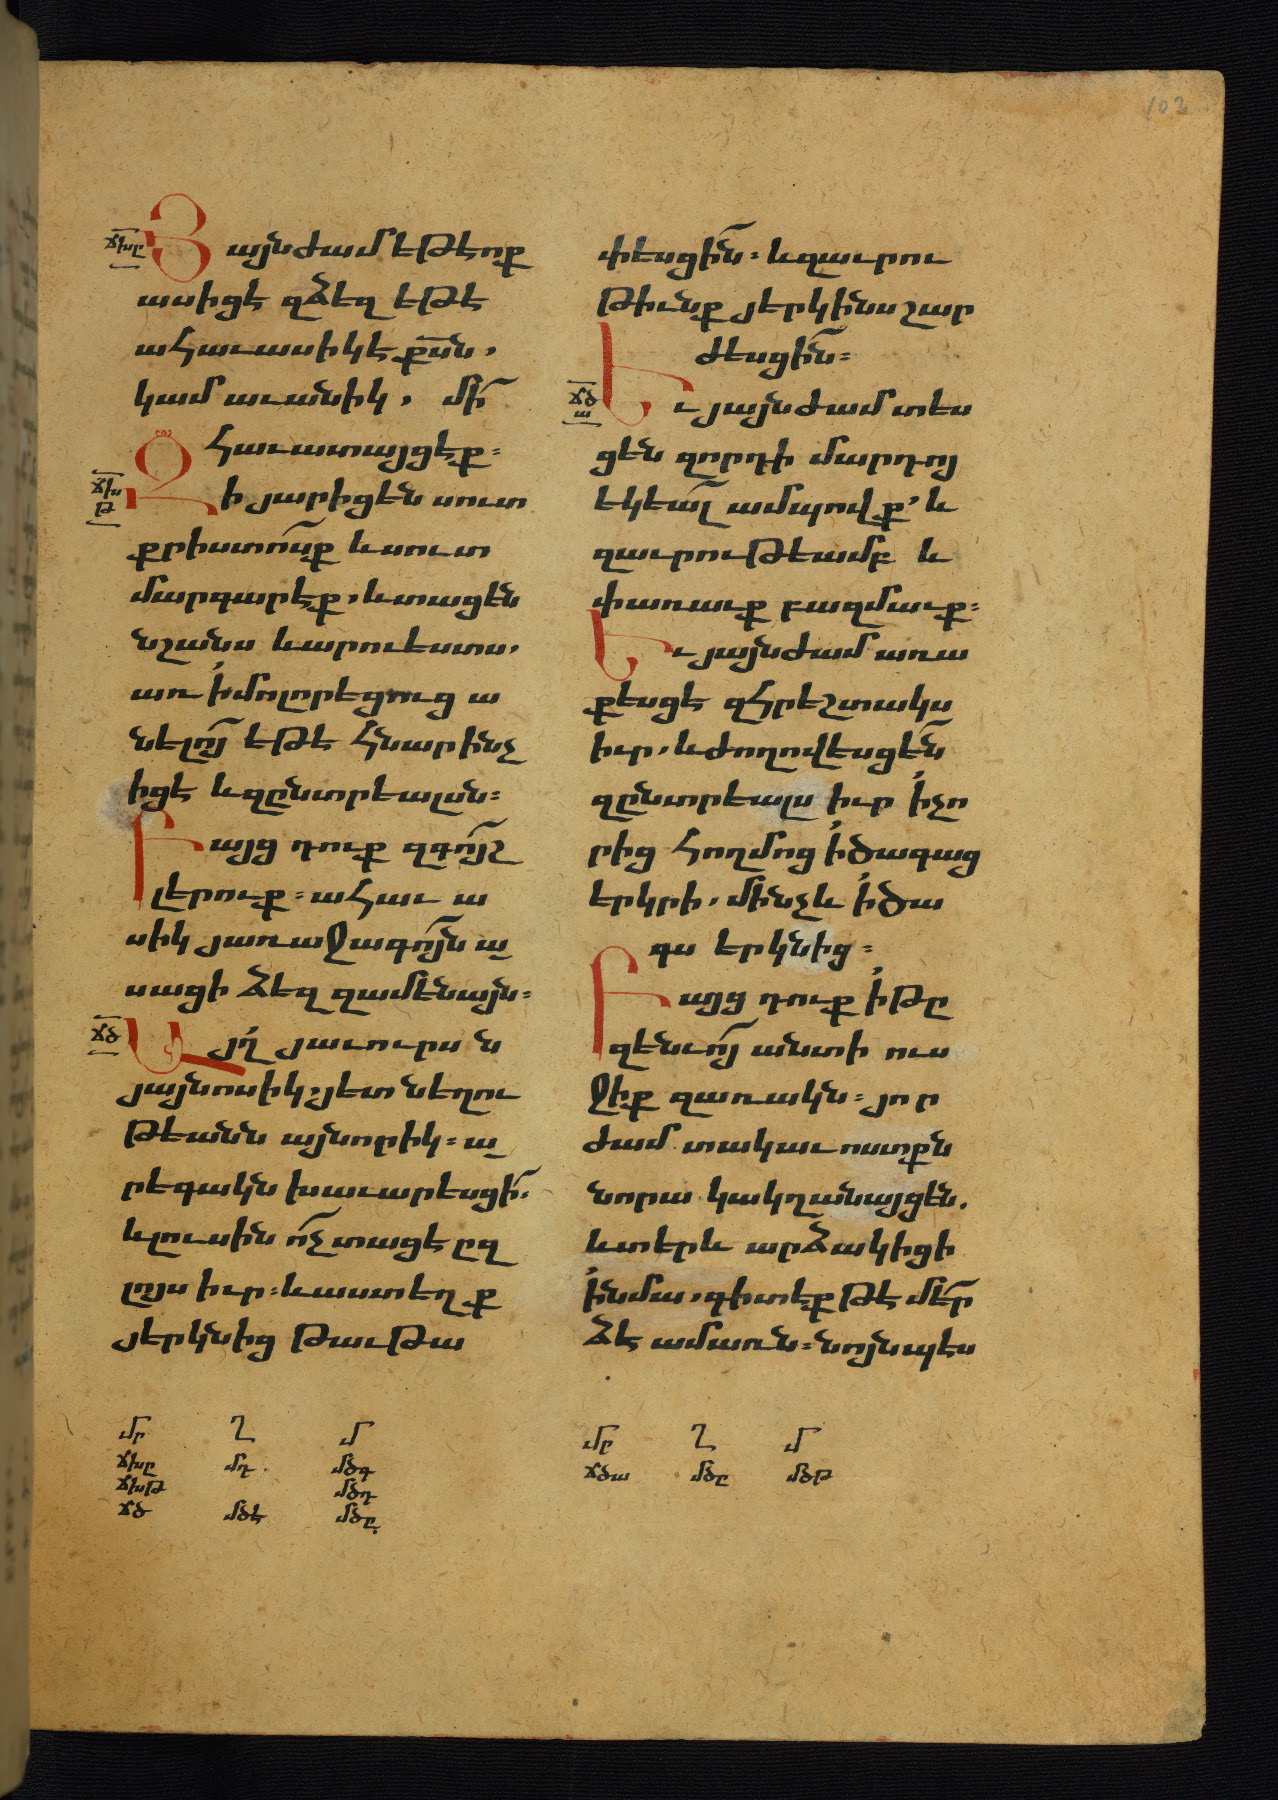 103
ճխը
Յայնժամ եթե ոք
ասիցէ ձեզ եթե
ահաւասիկ է քս̄ն,
կամ աւանիկ, մի՛
հաւատայցէք։
ճխթ
Զի յարիցեն սուտ
քրիստոսք և սուտ
մարգարէք, և տացեն
նշանս և արուեստս,
առ ի մոլորեցուց ա
նելոյ եթե հնար ինչ
իցէ և զընտրեալսն։
Բայց դուք զգոյշ
լերուք։ ահաւ ա
սիկ յառաջագոյն ա
սացի ձեզ զամենայն։
ճծ
Այղ յաւուրս ն
յայնոսիկ, յետ նեղու
թեանն այնորիկ։ ա
րեգակն խաւարեսցի՛,
և լուսին ո՛չ տացէ ըզ
լոյս իւր։ և աստեղ ք
յերկնից թաւթա
փեսցին։ և զաւրու
թիւնք յերկինս շար
ժեսցին։
ճծա
Եւ յայնժամ տես
ցեն զորդի մարդոյ
եկեալ ամպովք, և
զաւրութեամբ և
փառաւք բազմաւք։
Եւ յայնժամ առա
քեսցէ զհրեշտակս
իւր, և ժողովեսցեն
զընտրեալս իւր ի չո
րից հողմոց ի ծագաց
երկրի, մինչև ի ծա
գս երկնից։
Բայց դուք ի թը
զենւոյ անտի ուս
ջիք զառակն։ յոր
ժամ տակաւ ոստքն
նորա կակղանայցեն.
և տերև արձակիցի
ի նմա, գիտէք թէ մե՛ր
ձ է ամառն։ նոյնպէս
մր ղ մ
ճխը մդ մծգ
ճխթ մծդ
ճծ մծէ մծը
մր ղ մ
ճծա մծը մծթ